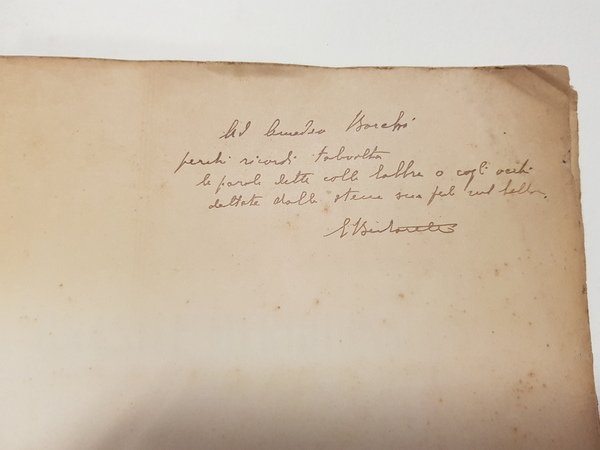 Ad Amedeo
perché ricordi talvolta
le parole dette colle labbra o cogli occhi
dettate dalla stessa sua fede nel bello.